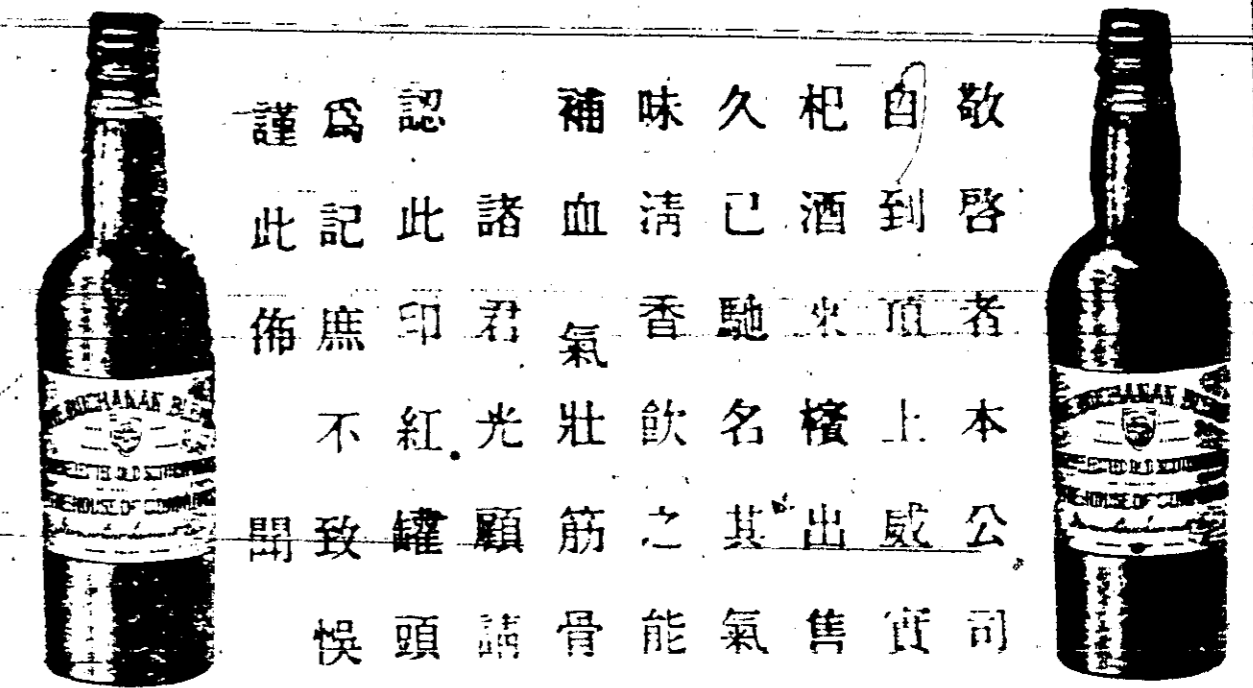 敬啓者本公司
自到頂上威實
杞酒來檳出售
久已馳名其氣
味清香飲之能
補血氣壯筋骨
諸君光顧請
認此印紅罐頭
爲記庶不致悞
謹此佈聞
THE BUCHANAN BLEND
SELECTED OLD SCOTCH
THE HOUSE OF COMMONS
THE BUCHANAN BLEND
SELECTED OLD SCOTCH
THE HOUSE OF COMMONS